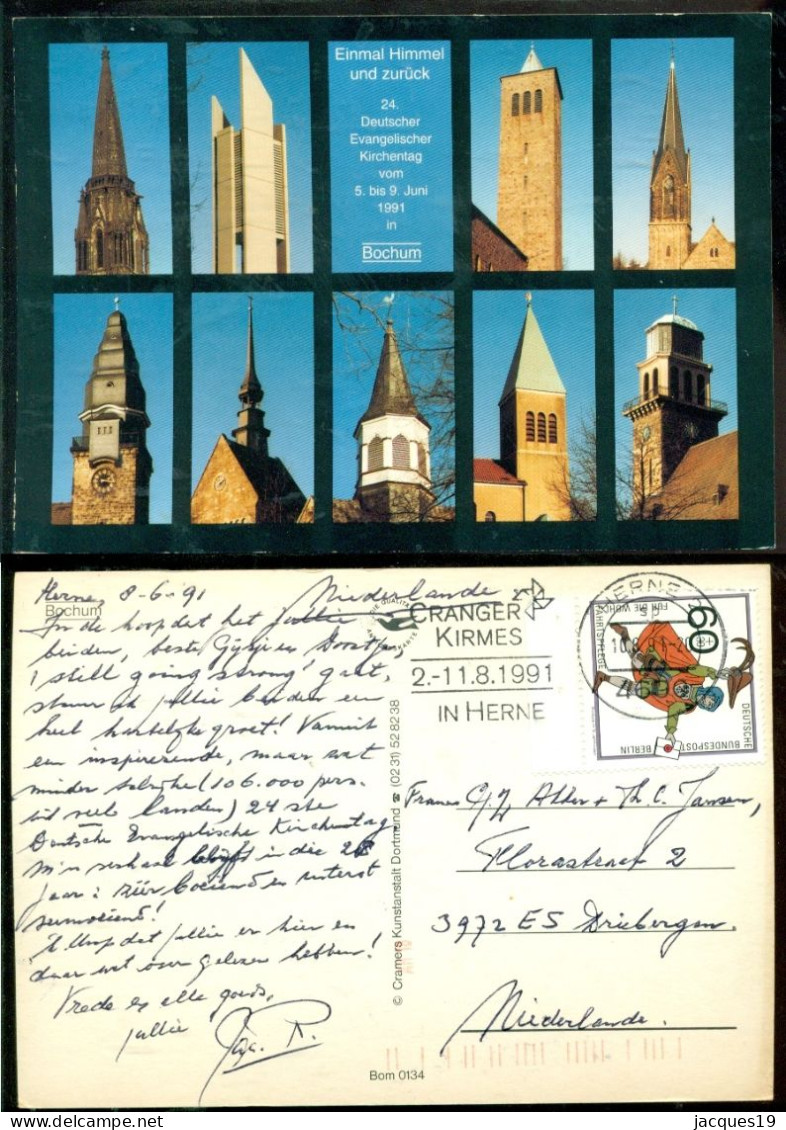 Einmal Himmel
und zurück
24.
Deutscher
Evangelischer
Kirchentag
vom
5. bis 9. Juni
1991
in
Bochum
Herne, 8-6-'91
Bochum
Niederlande
In de hoop dat het jullie
beiden, beste en
still going strong" gaat,
stuur ik jullie beiden een
heel hartelijke groet! Vanuit
een inspirerende, maar wat
minder (106.000 pers.
uit vele landen) 24 ste
Deutsche Evangelische Kirchentag
M'n verhaal blijft in die
jaar: zéér boeiend en uiterst
vermoeiend!
Ik hoop dat jullie er hier en
daar wat over gelezen hebben!
Vrede en alle goeds,
jullie
© Cramers Kunstanstalt Dortmund ☎ (0231) 52 82 38
CRANGER
KIRMES
2.-11.8.1991
IN HERNE
HERNE
60
FÜR DIE WOHLFAHRTSPFLEGE
DEUTSCHE BUNDESPOST BERLIN
+ Th. C. Jansen,
Florastraat 2
3972 ES Driebergen.
Niederlande.
Bom 0134
jacques19